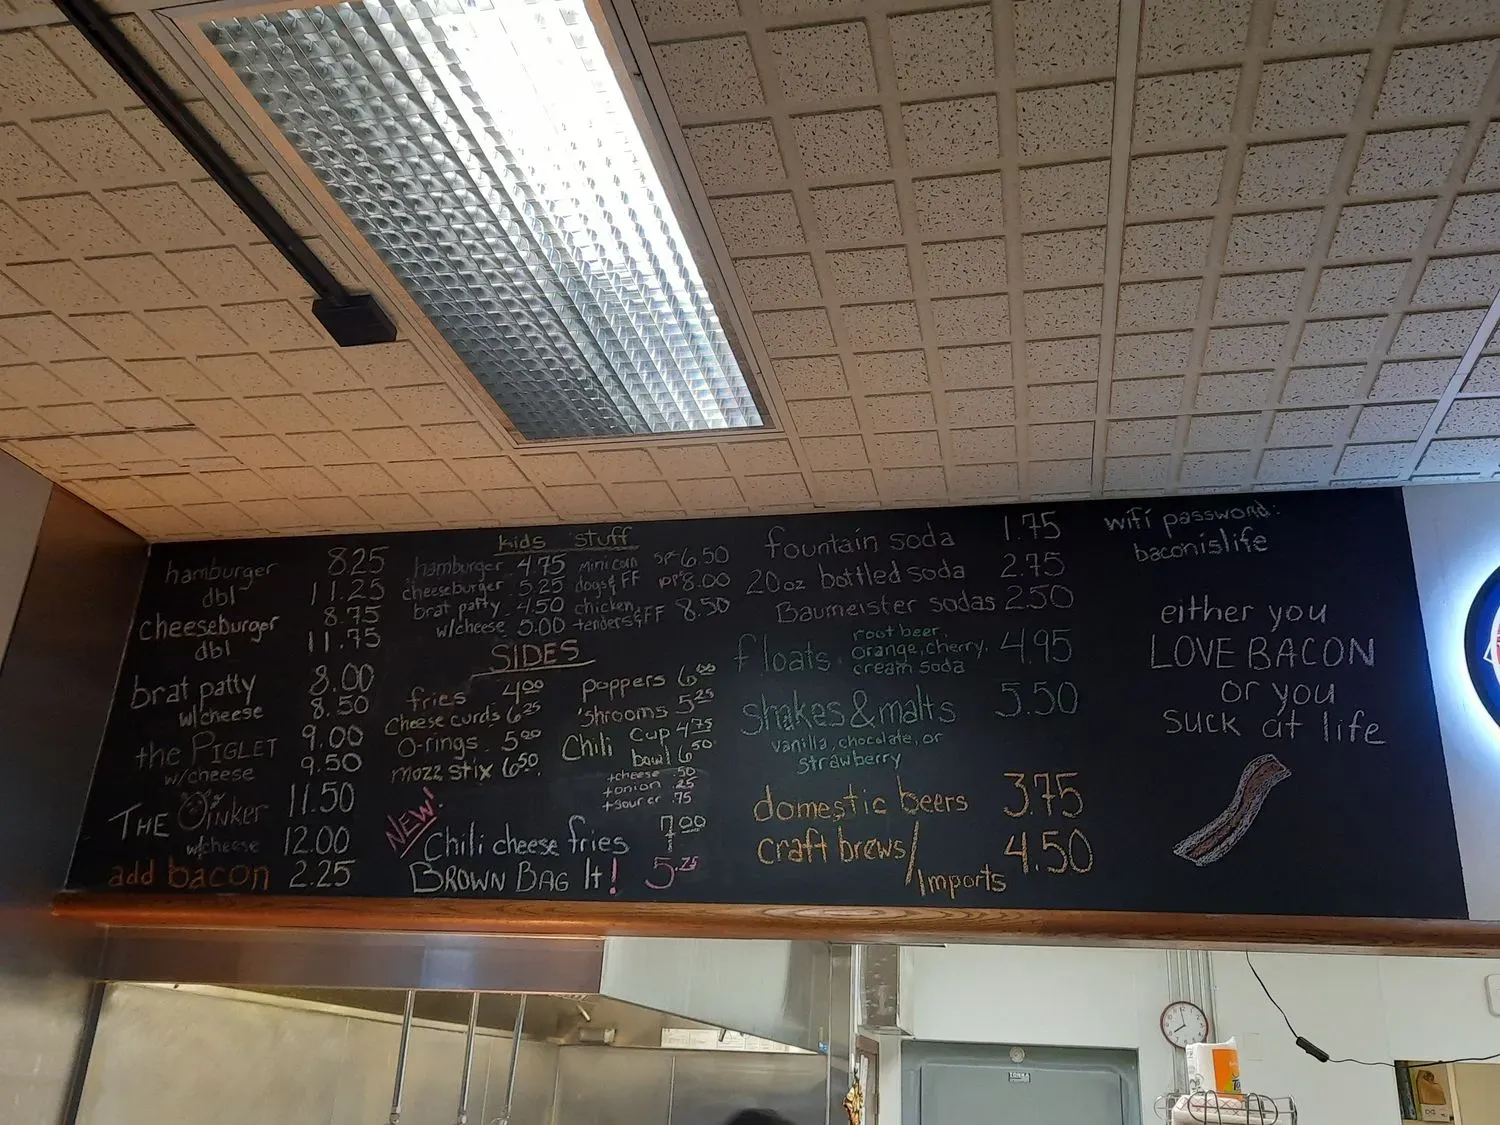 hamburger 8.25
dbl 11.25
cheeseburger 8.75
dbl 11.75
brat patty 8.00
w/cheese 8.50
the PIGLET 9.00
w/cheese 9.50
THE OiNKer 11.50
w/cheese 12.00
add bacon 2.25
kids stuff
hamburger 4.75
cheeseburger 5.25
brat patty 4.50
w/cheese 5.00
mini corn 5P 6.50
dogs & FF 10P 8.00
chicken
tenders & FF 8.50
SIDES
fries 4.00
Cheese curds 6.25
O-rings 5.00
mozz stix 6.50
poppers 6.00
'shrooms 5.25
Chili Cup 4.75
bowl 6.50
+cheese .50
+onion .25
+sour cr .75
NEW!
Chili cheese fries 7.00
BROWN BAG It! 5.25
fountain soda 1.75
20oz bottled soda 2.75
Baumeister sodas 2.50
floats root beer,
orange, cherry, 4.95
cream soda
shakes & malts 5.50
vanilla, chocolate, or
strawberry
domestic beers 3.75
craft brews/
Imports 4.50
wifi password:
baconislife
either you
LOVE BACON
or you
SUCK at life